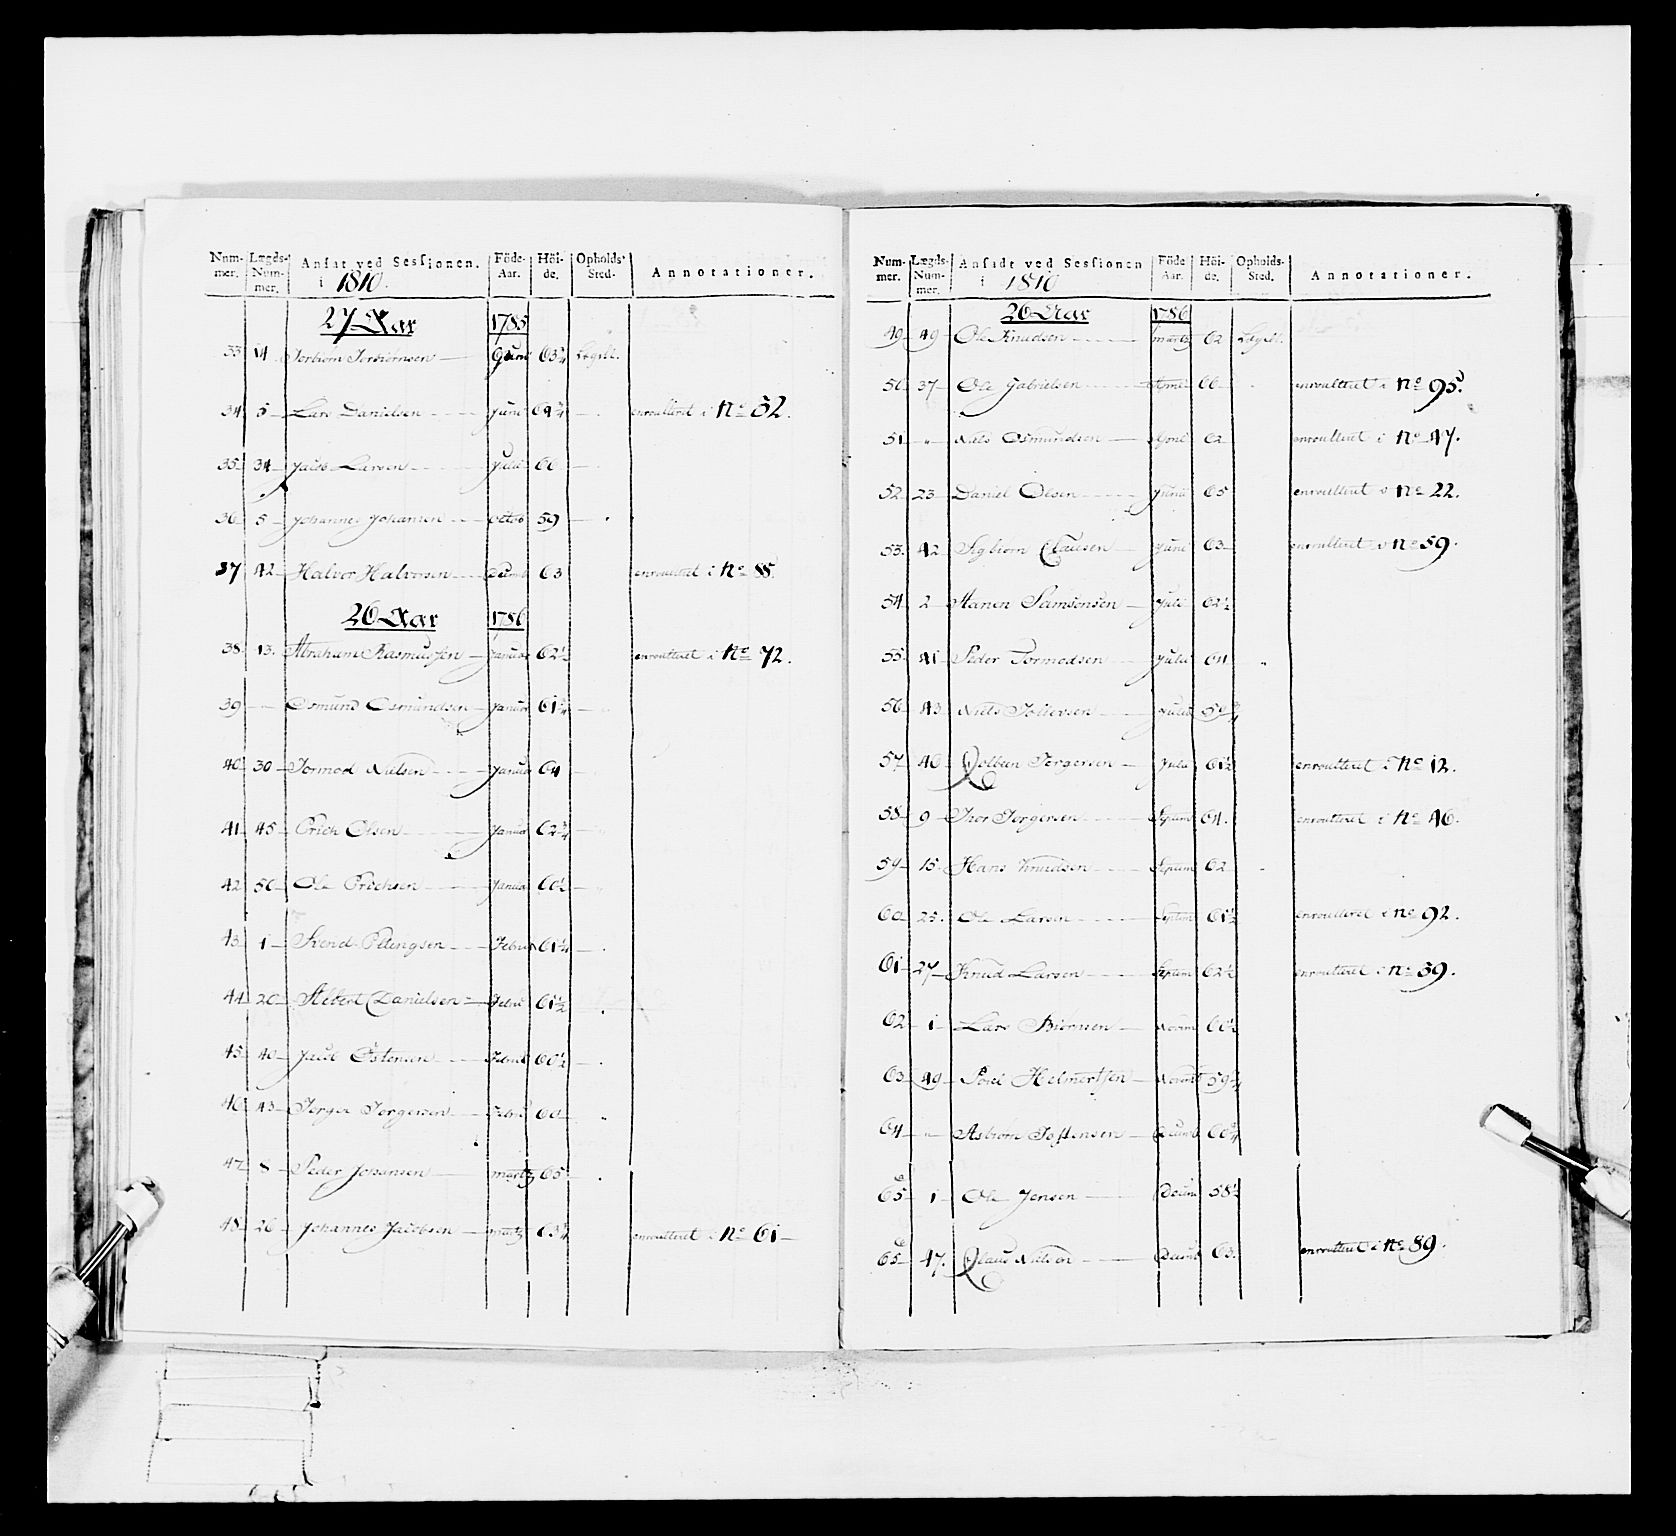 Num- Lægds- Ansat ved Sessionen. Föde- Höi- Opholds- Annotationer.
mer. Num- i 1810. Aar. de. Sted.
mer.
27 Aar 1785
33 14 Torbiörn Torbiörnsen Juni 63¾ Lægdt.
34 5 Lars Danielsen Juni enroulleret i No 52.
35 34 Jacob Larsen Juli 66
36 5 Johannes Johansen Octob 59
37 42 Halvor Halvorsen Decmb 63 enroulleret i No 88.
26 Aar 1786
38 13. Abraham Rasmussen Januar 62½ enroulleret i No 72.
39 Osmund Osmundsen Januar 61¼
40 30 Tormod Nielsen Januar 64
41 45 Erich Olsen Januar 62¾
42 50 Ole Erichsen Januar 60½
43 1 Svend Februa 61¼
44 20 Albert Danielsen Febru 61½
45 40 Jacob Februa 60½
46 43 Törger Törgersen Febru 60
47 8 Peder Johansen martz 65
48 26 Johannes Jacobsen martz 63¼ enroulleret i No 61
Num- Lægds- Ansadt ved Sessionen Föde Höi- Opholds- Annotationer.
mer. Num- i 1810 Aar. de. Sted.
mer.
26 Aar 1786
49 49 Ole Knudsen martz 62 Lægdt.
50 37 Ole Gabrielsen 66 enroulleret i No 95.
51 " Niels Osmundsen April 62 enroulleret i No 47.
52 23 Daniel Olsen Juni 65 enroulleret i No 22.
53. 42 Sigbiörn Clausen Juni 63 enroulleret i No 59.
54 2 Hanen Samsonsen Juli 62½
55. 41 Peder Tormodsen Juli 64
56 43 Niels Tollevsen Julii 59¾
57 46 Kolbeen Törgersen Julii 61½ enroulleret i No 12.
58 9 Thor Törgersen Septem 64. enroulleret i No 46.
59 15. Hans Knudsen Septem 62
60 25. Ole Larsen Septem 61½ enroulleret i No 92.
61 27 Knud Larsen Septem 62½ enroulleret i No 39.
62 1 Lars Biörnsen Novem 60½
63 49 Poul Helmertsen Novmb 59¼
64 " Asbiörn Decmb 60¾
65 a 1 Ole Jensen Decmb 58½
65 b 47. Klaus Nielsen Decmb 63. enroulleret i No 89.